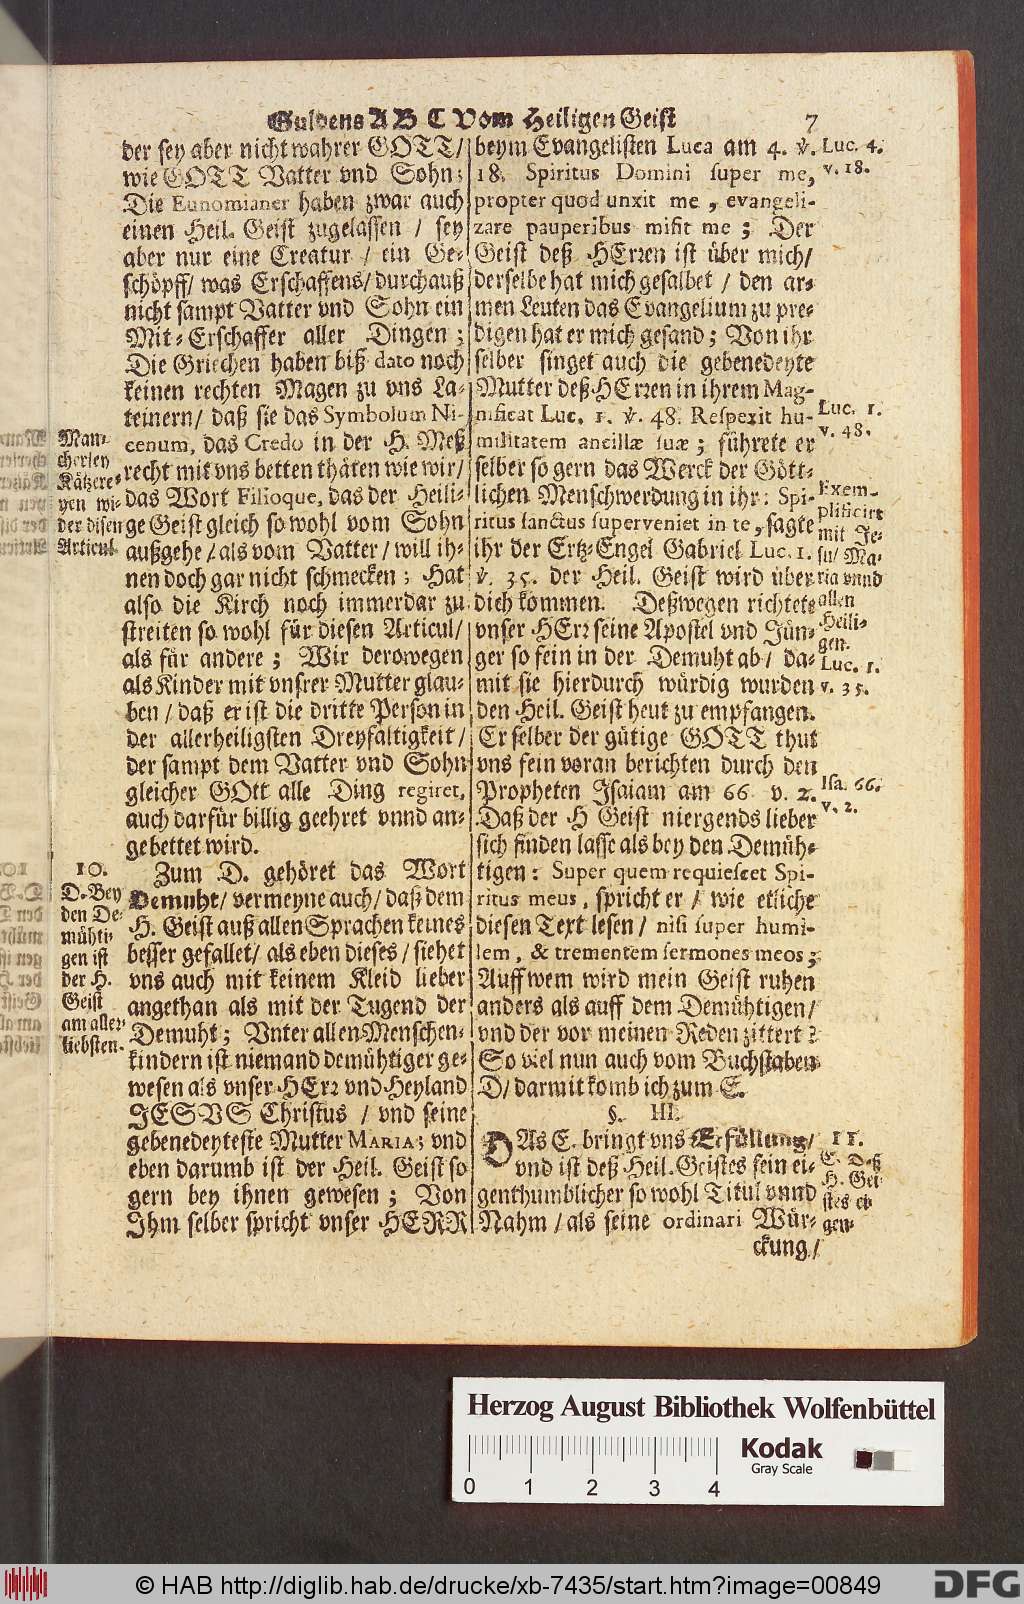 Guldens A B C Vom Heiligen Geist 7
der sey aber nicht wahrer GOTT/
wie GOTT Vatter vnd Sohn;
Die Eunomianer haben zwar auch
einen Heil. Geist zugelassen / sey
aber nur eine Creatur / ein Ge-
schöpff/ was Erschaffens/ durchauß
nicht sampt Vatter vnd Sohn ein
Mit-Erschaffer aller Dingen;
Die Griechen haben biß dato noch
keinen rechten Magen zu vns La-
teinern/ daß sie das Symbolum Ni-
cenum, das Credo in der H. Meß
recht mit vns betten thäten wie wir/
das Wort Filioque, das der Heili-
ge Geist gleich so wohl vom Sohn
außgehe/ als vom Vatter/ will ih-
nen doch gar nicht schmecken; Hat
also die Kirch noch immerdar zu
streiten so wohl für diesen Articul/
als für andere; Wir derowegen
als Kinder mit vnsrer Mutter glau-
ben/ daß er ist die dritte Person in
der allerheiligsten Dreyfaltigkeit/
der sampt dem Vatter vnd Sohn
gleicher GOtt alle Ding regiret,
auch darfür billig geehret vnnd an-
gebettet wird.
Zum D. gehöret das Wort
Demuht/ vermeyne auch/ daß dem
H. Geist auß allen Sprachen keines
besser gefallet/ als eben dieses/ siehet
vns auch mit keinem Kleid lieber
angethan als mit der Tugend der
Demuht; Vnter allen Menschen-
kindern ist niemand demühtiger ge-
wesen als vnser HErr vnd Heyland
JESVS Christus / vnd seine
gebenedeyteste Mutter MARIA; vnd
eben darumb ist der Heil. Geist so
gern bey ihnen gewesen; Von
Ihm selber spricht vnser HERR
Man-
cherley
Kätzere-
yen wi-
der disen
Articul.
10.
D. Bey
den De-
mühti-
gen ist
der H.
Geist
am aller-
liebsten.
beym Evangelisten Luca am 4. v.
18. Spiritus Domini super me,
propter quod unxit me, evangeli-
zare pauperibus misit me; Der
Geist deß HErren ist über mich/
derselbe hat mich gesalbet / den ar-
men Leuten das Evangelium zu pre-
digen hat er mich gesand; Von ihr
selber singet auch die gebenedeyte
Mutter deß HErren in ihrem Mag-
nificat Luc. 1. v. 48. Respexit hu-
militatem ancillæ suæ; führete er
selber so gern das Werck der Gött-
lichen Menschwerdung in ihr: Spi-
ritus sanctus superveniet in te, sagte
ihr der Ertz-Engel Gabriel Luc. 1.
v. 35. der Heil. Geist wird über
dich kommen. Deßwegen richtete
vnser HErr seine Apostel vnd Jün-
ger so fein in der Demuht ab/ da-
mit sie hierdurch würdig wurden
den Heil. Geist heut zu empfangen.
Er selber der gütige GOTT thut
vns fein voran berichten durch den
Propheten Isaiam am 66. v. 2.
Daß der H Geist niergends lieber
sich finden lasse als bey den Demüh-
tigen: Super quem requiescet Spi-
ritus meus, spricht er/ wie etliche
diesen Text lesen/ nisi super humi-
lem, & trementem sermones meos;
Auff wem wird mein Geist ruhen
anders als auff dem Demühtigen/
vnd der vor meinen Reden zittert?
So viel nun auch vom Buchstaben
D/ darmit komb ich zum E.
§. III.
DAs E. bringt vns Erfüllung/
vnd ist deß Heil. Geistes sein ei-
genthumblicher so wohl Titul vnnd
Nahm / als seine ordinari Wür-
ckung/
Luc. 4.
v. 18.
Luc. 1.
v. 48.
Exem-
plificirt
mit Je-
su/ Ma-
ria vnnd
allen
Heili-
gen.
Luc. 1.
v. 35.
Isa. 66.
v. 2.
11.
E. Deß
H. Gei-
stes
gen-
Herzog August Bibliothek Wolfenbüttel
Kodak
Gray Scale
0 1 2 3 4
© HAB http://diglib.hab.de/drucke/xb-7435/start.htm?image=00849
DFG